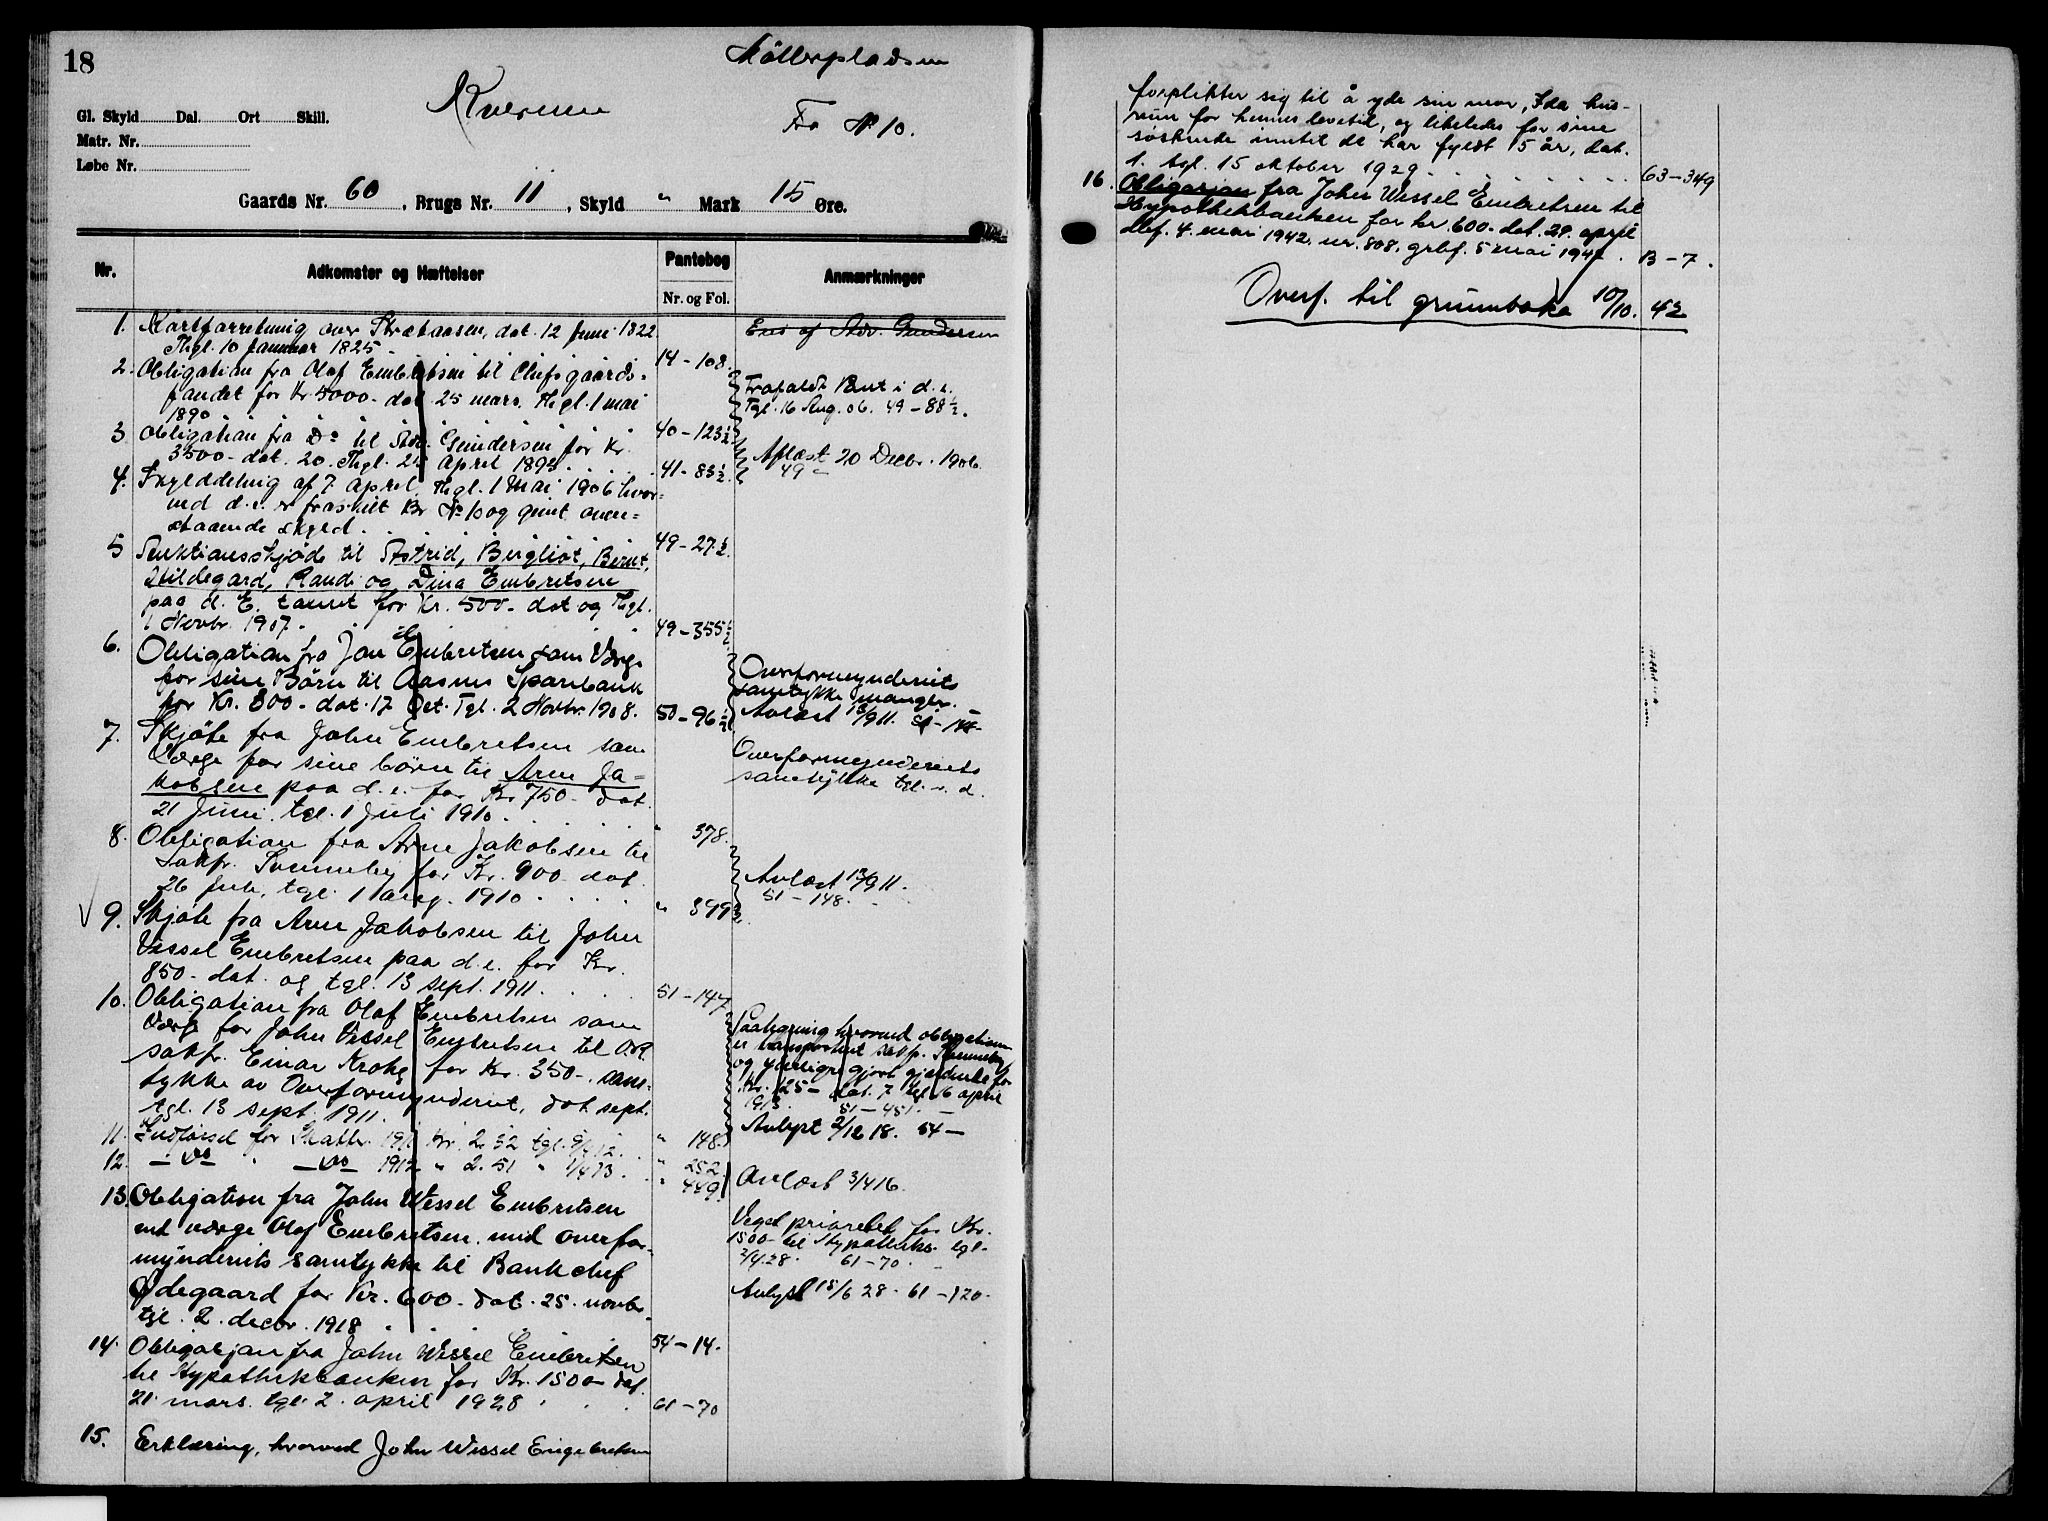 18
Møllerpladsen
Kvernen
Fra № 10.
Gl. Skyld Dal. Ort Skill.
Matr. Nr.
Løbe Nr.
Gaards Nr. 60, Brugs Nr. 11, Skyld " Mark 15 Øre.
Nr. Adkomster og Hæftelser Pantebog Anmærkninger
Nr. og Fol.
1. Kartforretning over dat. 12 Juni 1822
Thgl. 10 Januar 1825. 14-108.
2. Obligation fra Olaf Embretsen til
fondet for Kr. 5000- dat. 25 mars. Thgl. 1 mai
1890 40-123½
Frafaldt Pant i d.e.
Tgl. 16 Aug. 06. 49-88½.
3. Obligation fra Do til Adv. Gundersen for Kr.
3500- dat. 20. Thgl. 25 April 1893. 41-83½.
Aflæst 20 Decbr. 1906.
49-
4. Skylddeling af 7 April, Thgl. 1 Mai 1906 hvor-
ved d.e. er fraskilt Br № 10 og givet oven-
staaende skyld. 49-27½.
5 Auktionsskjøde til Astrid, Bergliot, Bernt,
Hildegard, Randi og Dina Embretsen
paa d. E. tomt for Kr. 500- dat og Thgl.
1 Novbr. 1907. 49-355½
6. Obligation fra Jon Embretsen som Værge
for sine Børn til Aasnes Sparebank
for Kr. 800- dat. 17 Oct. Tgl. 2 Novbr. 1908. 50-96½
Overformynderiets
samtykke mangler.
Avlæst 13/9 11.
7. Skjøte fra John Embretsen som
Værge for sine børn til Arne Ja-
kobsen paa d.e. for Kr 750- dat.
21 Juni, tgl. 1 Juli 1910. " 378.
Overformynderiets
samtykke tgl. s. d.
8. Obligation fra Arne Jakobsen til
Sakfr. for Kr. 900 dat.
26 Juli, tgl. 1 aug. 1910. " 399
Avlæst 13/9 11.
51-148.
9. Skjøte fra Arne Jakobsen til John
Wessel Embretsen paa d.e. for Kr.
850- dat. og tgl. 13 sept. 1911. 51-147
10. Obligation fra Olaf Embretsen som
Værge for John Wessel Embretsen til O.r.
sakfr. Einar Krohg for Kr. 350-. sam-
tykke av Overformynderiet, dat. sept.
tgl. 13 sept. 1911. " 148.
Paategning hvorved obligationen
er transportert sakfr.
og yderligere gjort gjældende for
Kr. 125- dat. 7 tgl 16 april
1913. 51-451.
Avlyst 2/12 18. 54-
11. Utførsel for Skatter 1911 Kr. 2.32 tgl. " 252.
12. - Do - - Do 1912 " 2.51 " " 449.
Avlæst 3/4 16.
13. Obligation fra John Wessel Embretsen
ved værge Olaf Embretsen med overfor-
mynderiets samtykke til Bankchef
Ødegaard for Kr. 600- dat. 25. novbr
tgl. 2. decbr. 1918 54-14.
Veget prioritet for Kr.
1500- til Hypothekb. tgl.
2/4 28. 61-70.
Avlyst 15/6 28. 61-120.
14. Obligasjon fra John Wessel Embretsen
til Hypothekbanken for Kr. 1500- dat.
21. mars. tgl. 2. april 1928 61-70
15. Erklæring, hvorved John Wessel Engebretsen
forplikter sig til å yde sin mor, Ida hus-
rum for hennes levetid, og likeledes for sine
søskende inntil de har fyldt 15 år, dat.
1. tgl. 15 oktober 1929 63-349
16. Obligasjon fra John Wessel Embretsen til
Hypothekbanken for kr. 600- dat. 29. april
dbf. 4. mai 1942. nr. 808. grbf. 5 mai 1942. B-7.
Overf. til grunnboka 10/10. 42